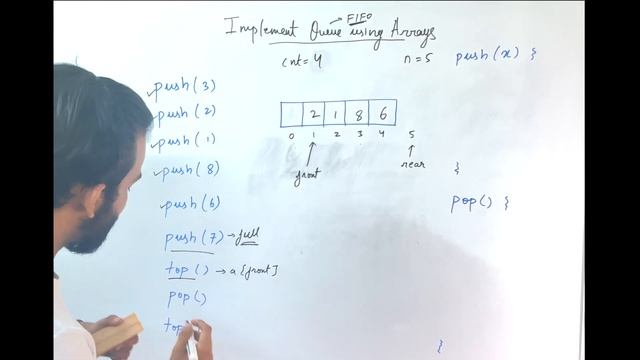 FIFO
Implement Queue using Arrays
cnt = 4
n = 5
push(x) {
}
pop() {
}
push(3)
push(2)
push(1)
push(8)
push(6)
push(7) → full
top() → a[front]
pop()
top
2 1 8 6
0 1 2 3 4 5
front
rear